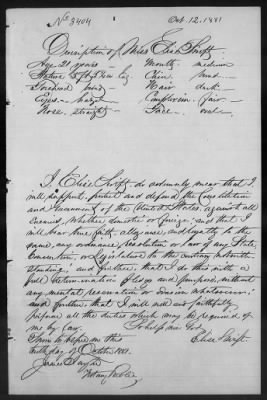 No 3404 Oct. 12. 1881
Description of Miss Elise Swift.
Age 21 years - Mouth - medium
Stature 5 ft Eng. Chin
Forehead Hair dark -
Eyes - hazel Complexion - fair -
Nose, straight - Face - oval -
I, Elise Swift, do solemnly swear that I
will support, protect and defend the Constitution
and Government of the United States, against all
enemies, whether domestic or foreign; and that I
will bear true faith, allegiance, and loyalty to the
same, any ordinance, resolution or law of any State,
Convention, or Legislature to the contrary notwith-
standing; and further, that I do this with a
full determination, pledge and purpose, without
any mental reservation or evasion whatsoever;
and further that I will well and faithfully
perform all the duties which may be required of
me by law. So help me God.
Sworn to before me this Elise Swift.
day of October 1881.
James
Notary Public